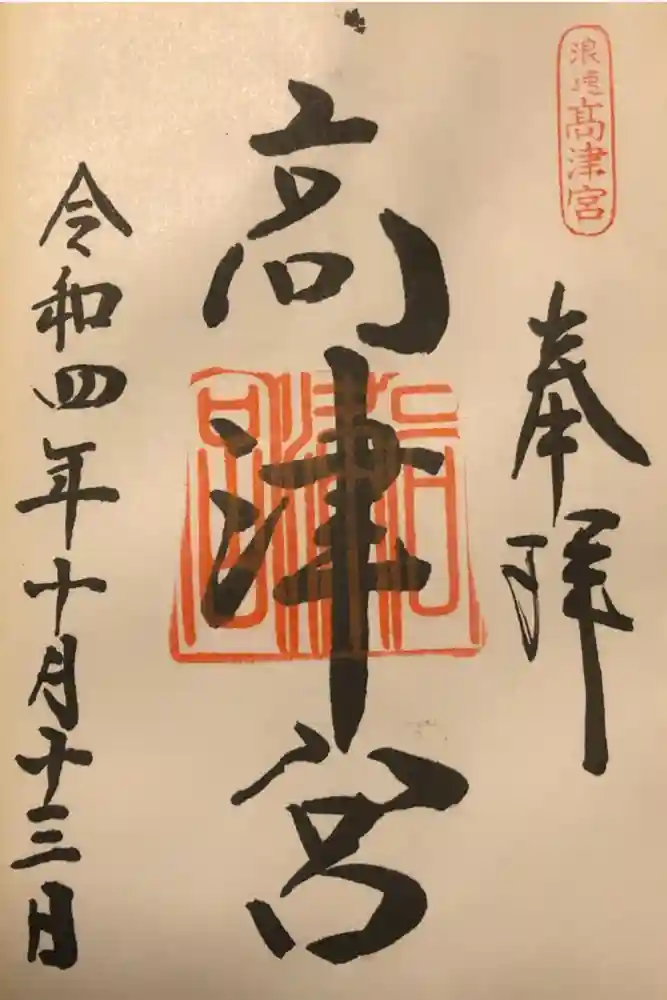 浪速高津宮
奉拝
高津宮
高津宮
令和四年十月十三日